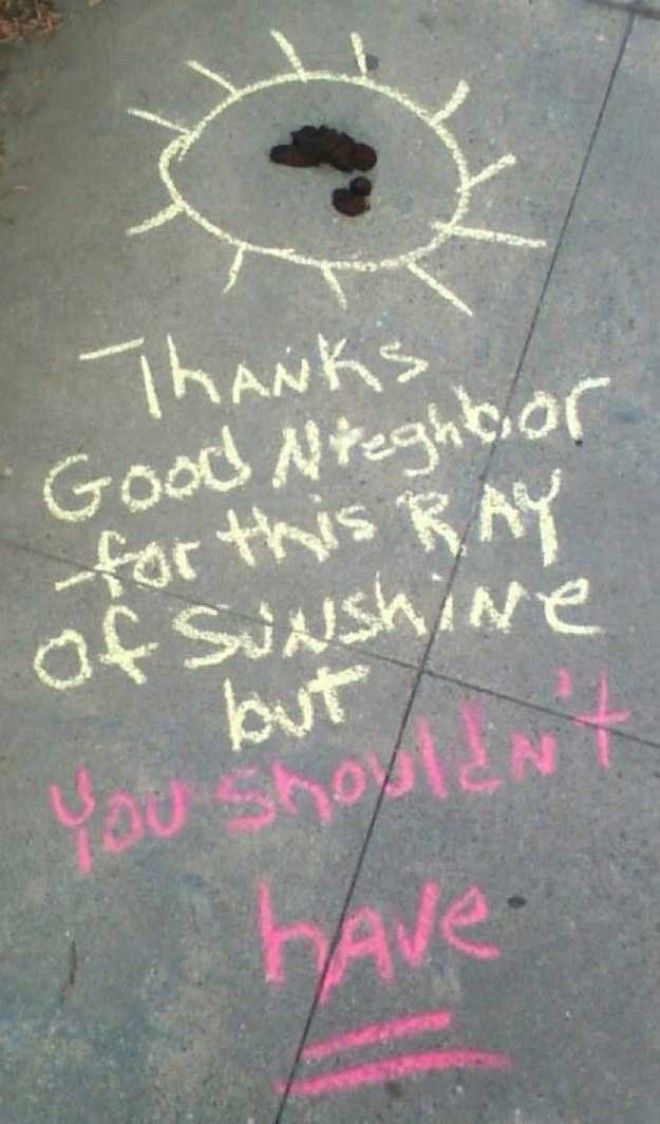 Thanks
Good Nieghbor
for this RAY
of Sunshine
but
You shouldn't
have